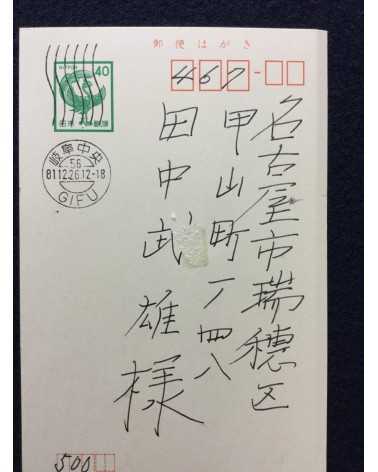 郵便はがき
NIPPON
40
日本郵便
岐阜中央
56
81.12.26.12-18
GIFU
467-
名古屋市瑞穂区
甲山町一ノ四八
田中武雄様
500